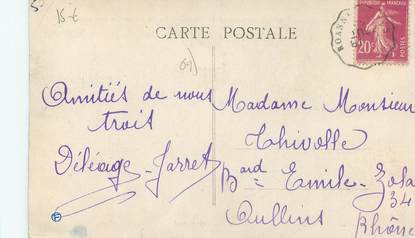 15 €
CARTE POSTALE
69)
ROANN
20c
POSTES
Amitiés de nous
trois
Déléage-Jarret
Madame Monsieur
Thivolle
Bard Emile-Zola
34
Oullins
Rhône